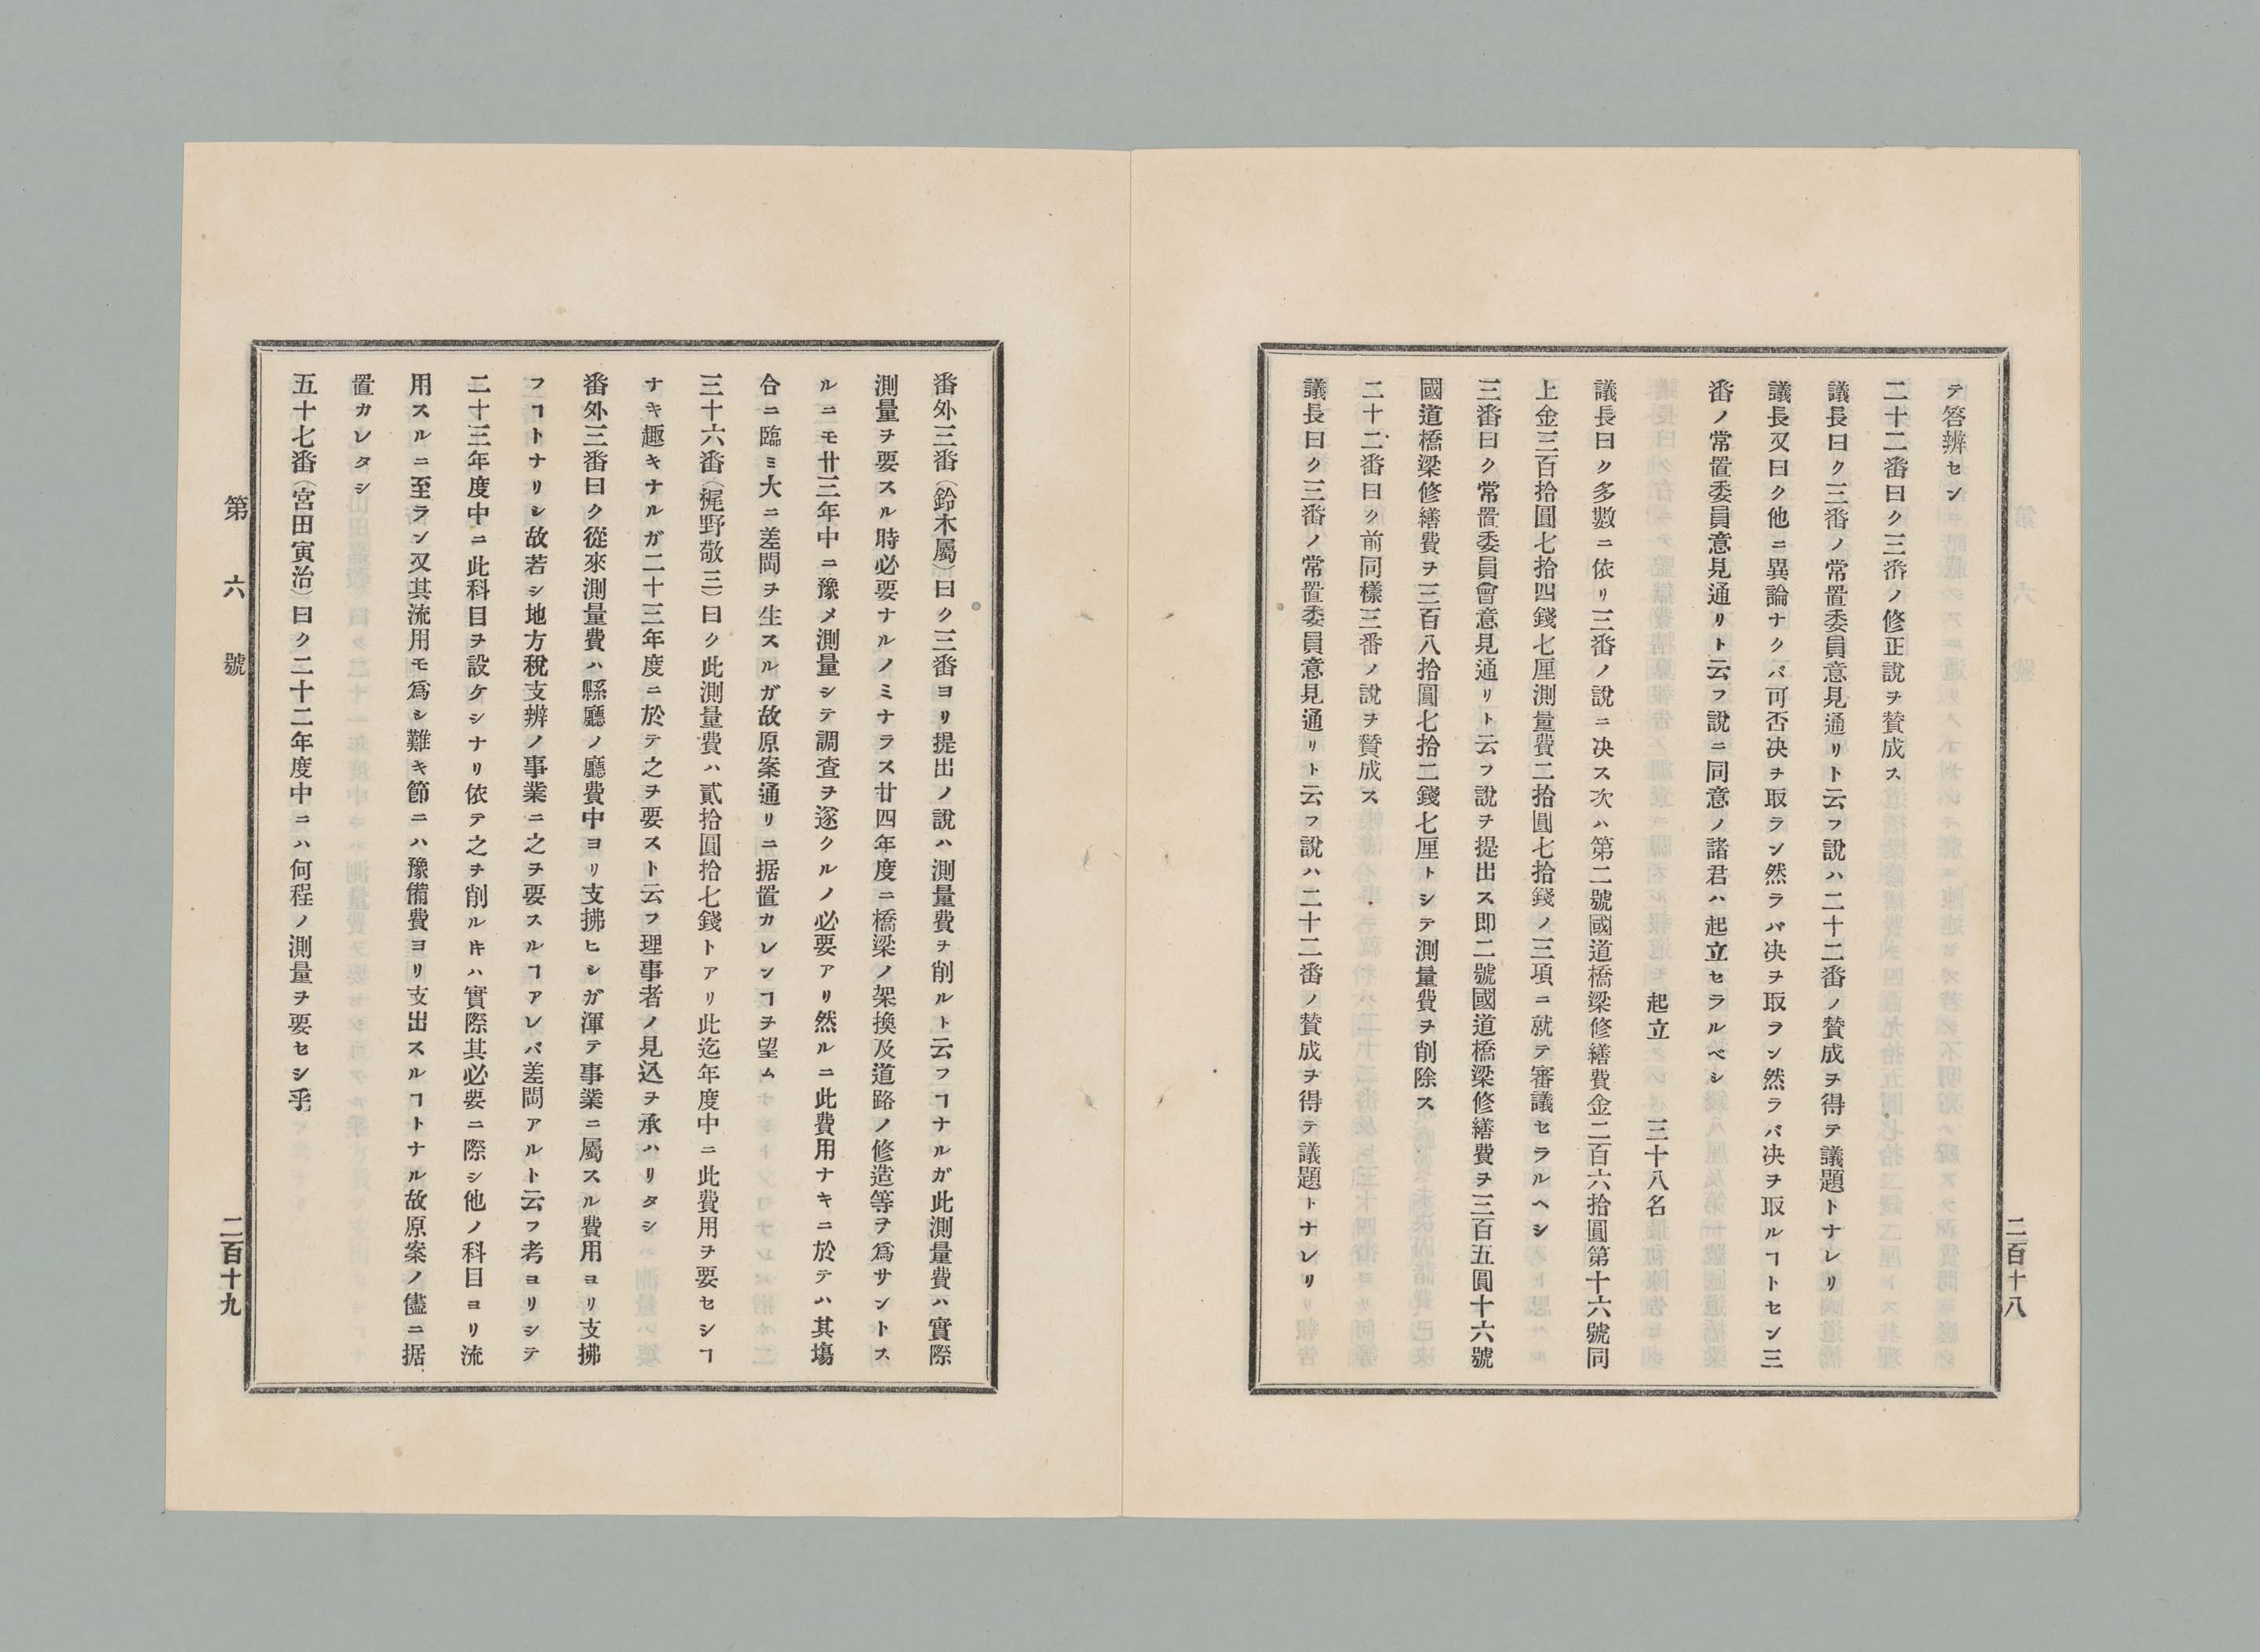 テ答辨セン
二十二番曰ク三番ノ修正說ヲ賛成ス
議長曰ク三番ノ常置委員意見通リト云フ說ハ二十二番ノ賛成ヲ得テ議題トナレリ
議長又曰ク他ニ異論ナクバ可否决ヲ取ラン然ラバ决ヲ取ラン然ラバ决ヲ取ルヿトセン三
番ノ常置委員意見通リト云フ說ニ同意ノ諸君ハ起立セラルベシ
起立 三十八名
議長曰ク多數ニ依リ三番ノ說ニ决ス次ハ第二號國道橋梁修繕費金二百六拾圓第十六號同
上金三百拾圓七拾四錢七厘測量費二拾圓七拾錢ノ三項ニ就テ審議セラルヘシ
三番曰ク常置委員會意見通リト云フ說ヲ提出ス即二號國道橋梁修繕費ヲ三百五圓十六號
國道橋梁修繕費ヲ三百八拾圓七拾二錢七厘トシテ測量費ヲ削除ス
二十二番曰ク前同樣三番ノ說ヲ賛成ス
議長曰ク三番ノ常置委員意見通リト云フ說ハ二十二番ノ賛成ヲ得テ議題トナレリ
二百十八
番外三番(鈴木屬)曰ク三番ヨリ提出ノ說ハ測量費ヲ削ルト云フヿナルガ此測量費ハ實際
測量ヲ要スル時必要ナルノミナラス廿四年度ニ橋梁ノ架換及道路ノ修造等ヲ爲サントス
ルニモ廿三年中ニ豫メ測量シテ調査ヲ遂クルノ必要アリ然ルニ此費用ナキニ於テハ其塲
合ニ臨ミ大ニ差閊ヲ生スルガ故原案通リニ据置カレンヿヲ望ム
三十六番(梶野敬三)曰ク此測量費ハ貳拾圓拾七錢トアリ此迄年度中ニ此費用ヲ要セシヿ
ナキ趣キナルガ二十三年度ニ於テ之ヲ要スト云フ理事者ノ見込ヲ承ハリタシ
番外三番曰ク從來測量費ハ縣廳ノ廳費中ヨリ支拂ヒシガ渾テ事業ニ屬スル費用ヨリ支拂
フヿトナリシ故若シ地方稅支辨ノ事業ニ之ヲ要スルヿアレバ差閊アルト云フ考ヨリシテ
二十三年度中ニ此科目ヲ設ケシナリ依テ之ヲ削ルキハ實際其必要ニ際シ他ノ科目ヨリ流
用スルニ至ラン又其流用モ爲シ難キ節ニハ豫備費ヨリ支出スルヿトナル故原案ノ儘ニ据
置カレタシ
五十七番(宮田寅治)曰ク二十二年度中ニハ何程ノ測量ヲ要セシ乎
第六號
二百十九